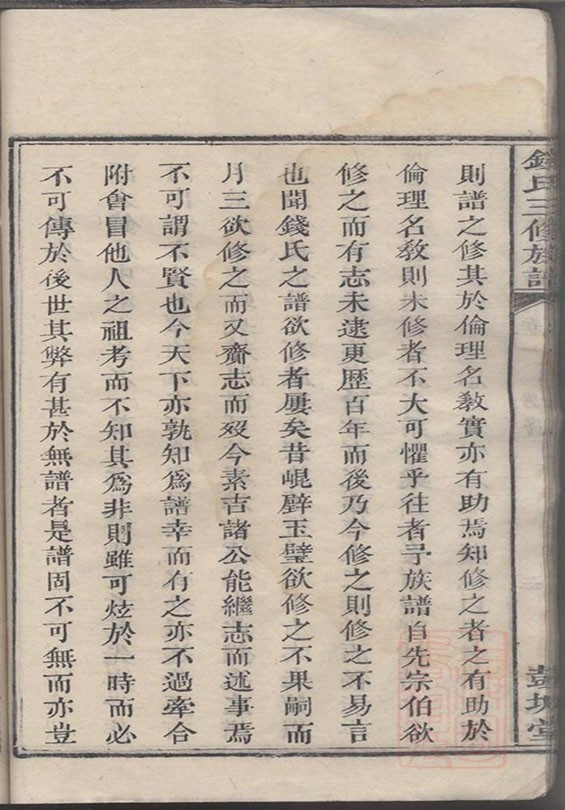 錢氏三修族譜
彭城堂
則譜之修其於倫理名教實亦有助焉知修之者之有助於
倫理名教則未修者不大可懼乎往者予族譜自先宗伯欲
修之而有志未逮更歷百年而後乃今修之則修之不易言
也聞錢氏之譜欲修者屢矣昔崐壁玉璧欲修之不果嗣而
月三欲修之而又齎志而歿今素吉諸公能繼志而述事焉
不可謂不賢也今天下亦孰知爲譜幸而有之亦不過牽合
附會冒他人之祖考而不知其爲非則雖可炫於一時而必
不可傳於後世其弊有甚於無譜者是譜固不可無而亦豈